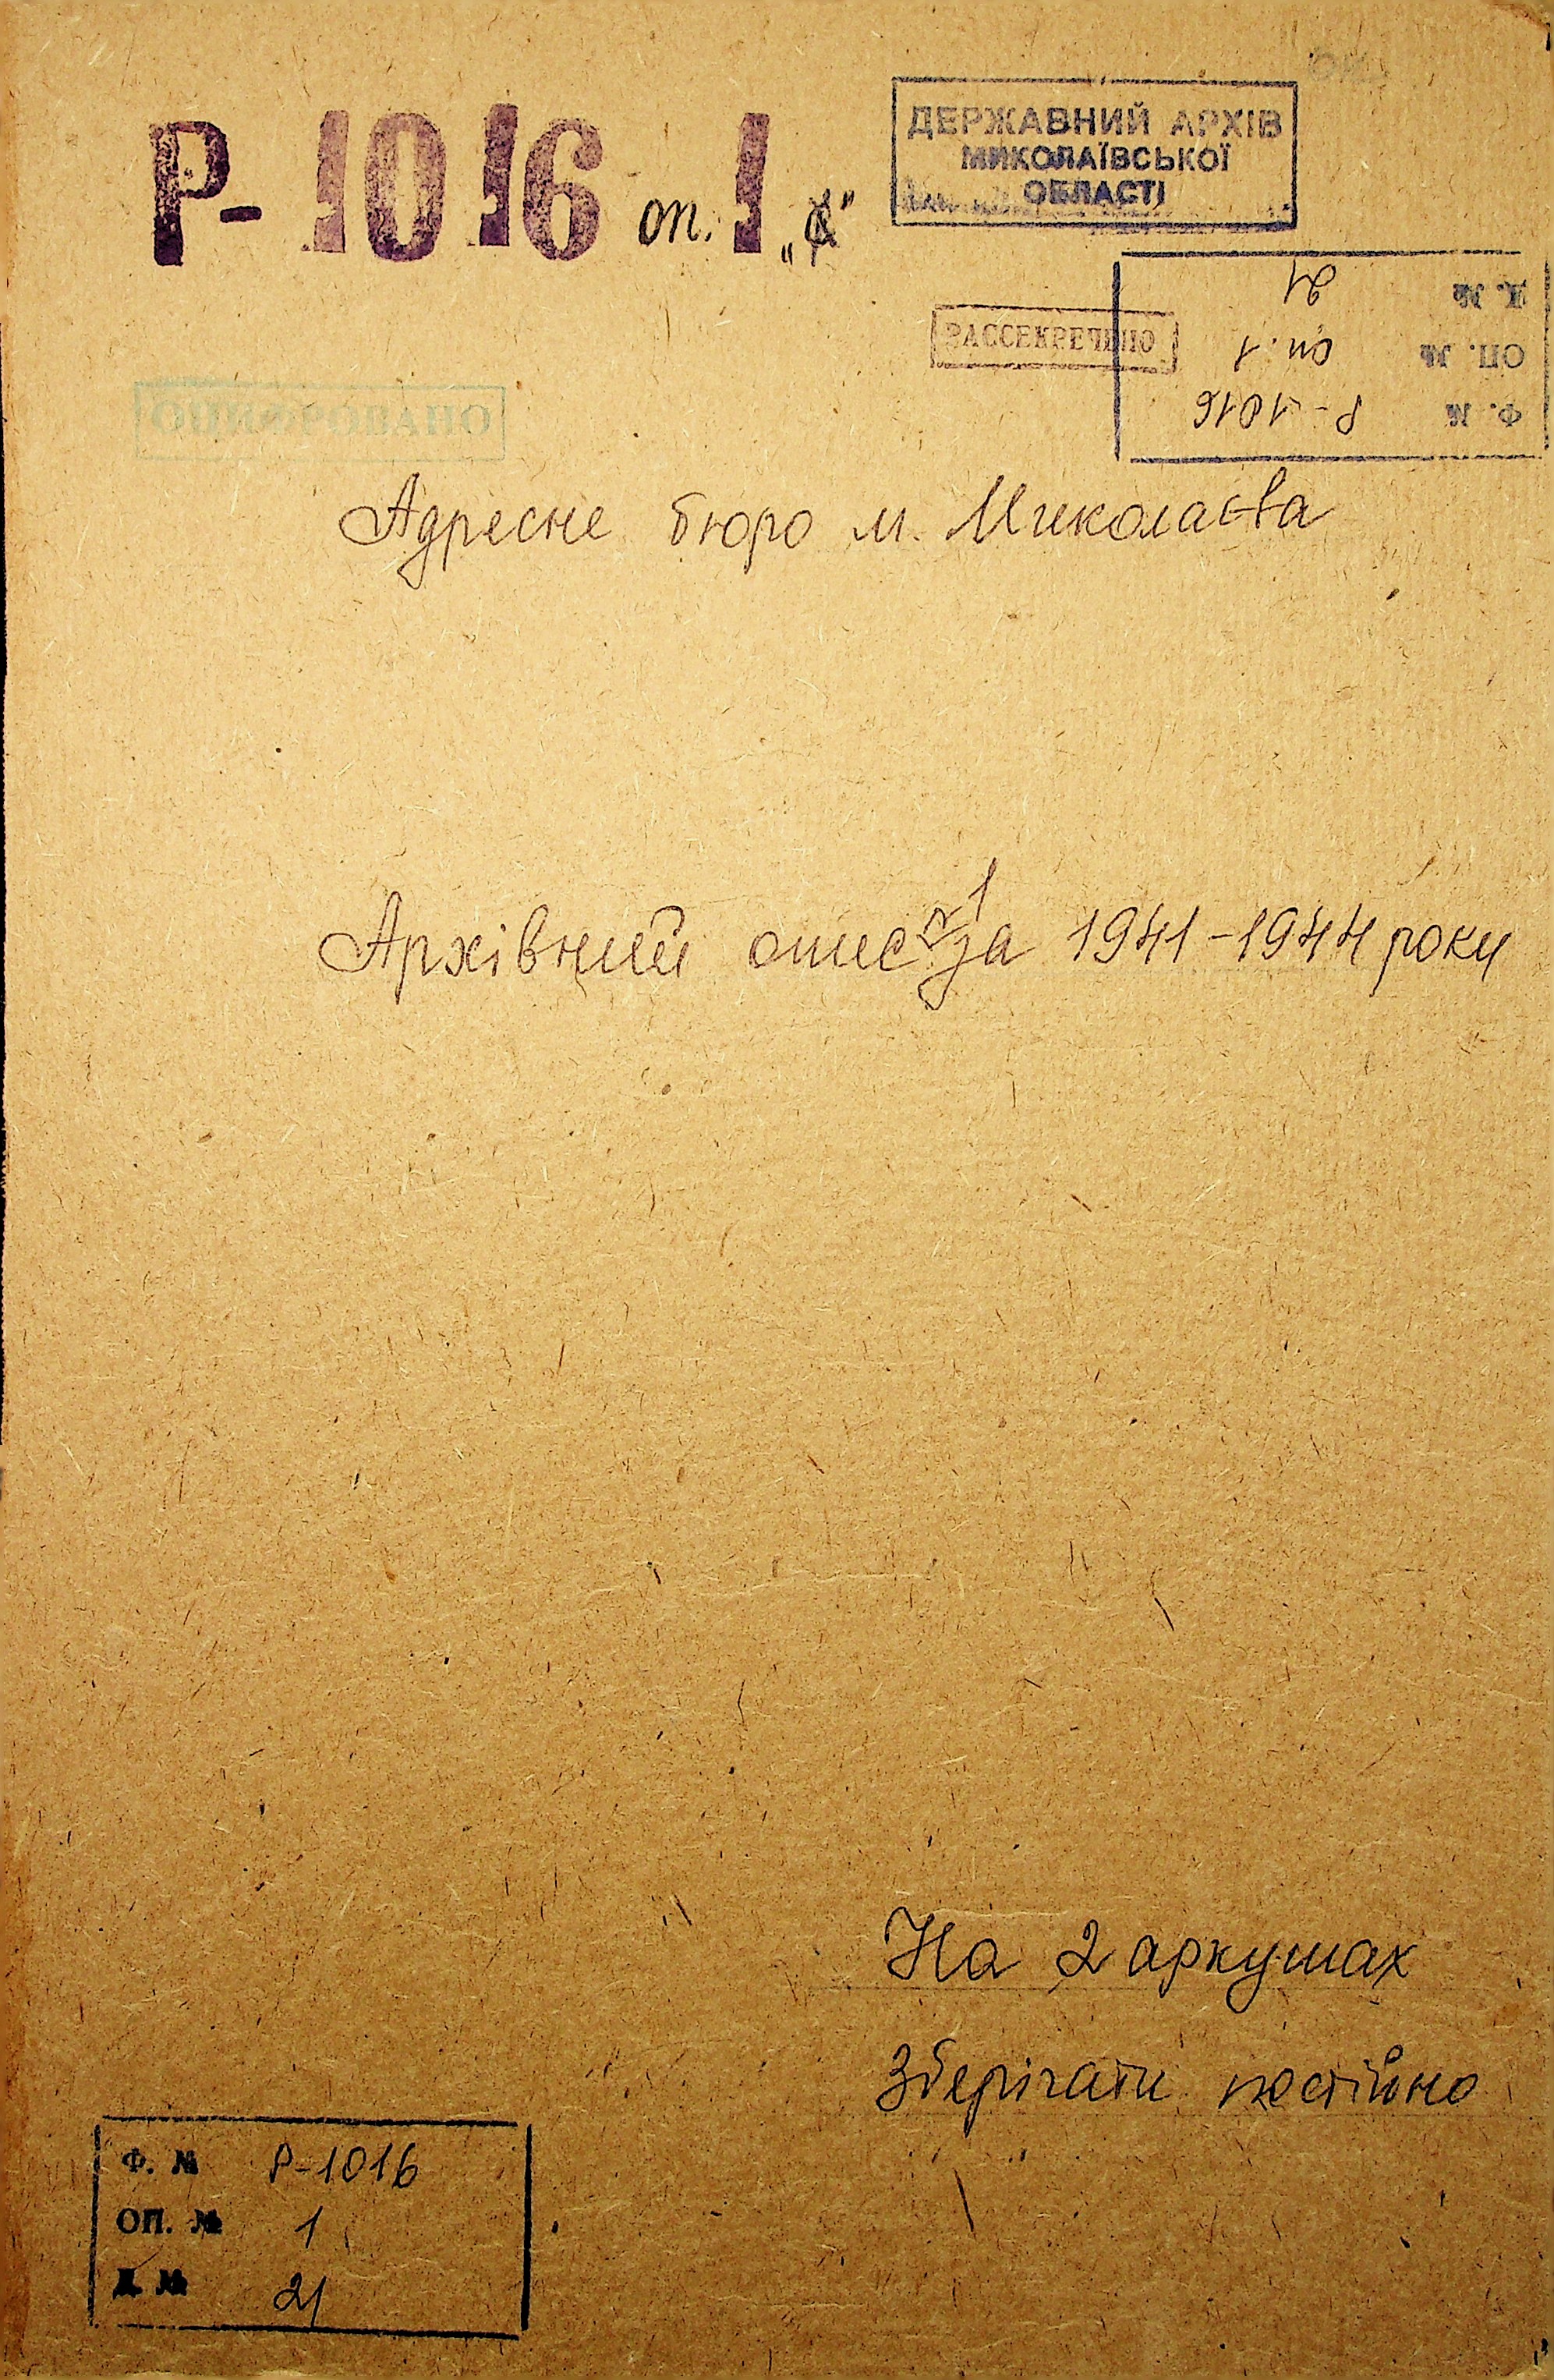 Р-1016 оп. 1
ДЕРЖАВНИЙ АРХІВ
МИКОЛАЇВСЬКОЇ
ОБЛАСТІ
РАССЕКРЕЧЕНО
Ф. № Р-1016
ОП. № оп. 1
Д. № 21
ОЦИФРОВАНО
Адресне бюро м. Миколаєва
Архівний опис №1 за 1941-1944 роки
На 2 аркушах
Зберігати постійно
Ф. № Р-1016
ОП. № 1
Д. № 21